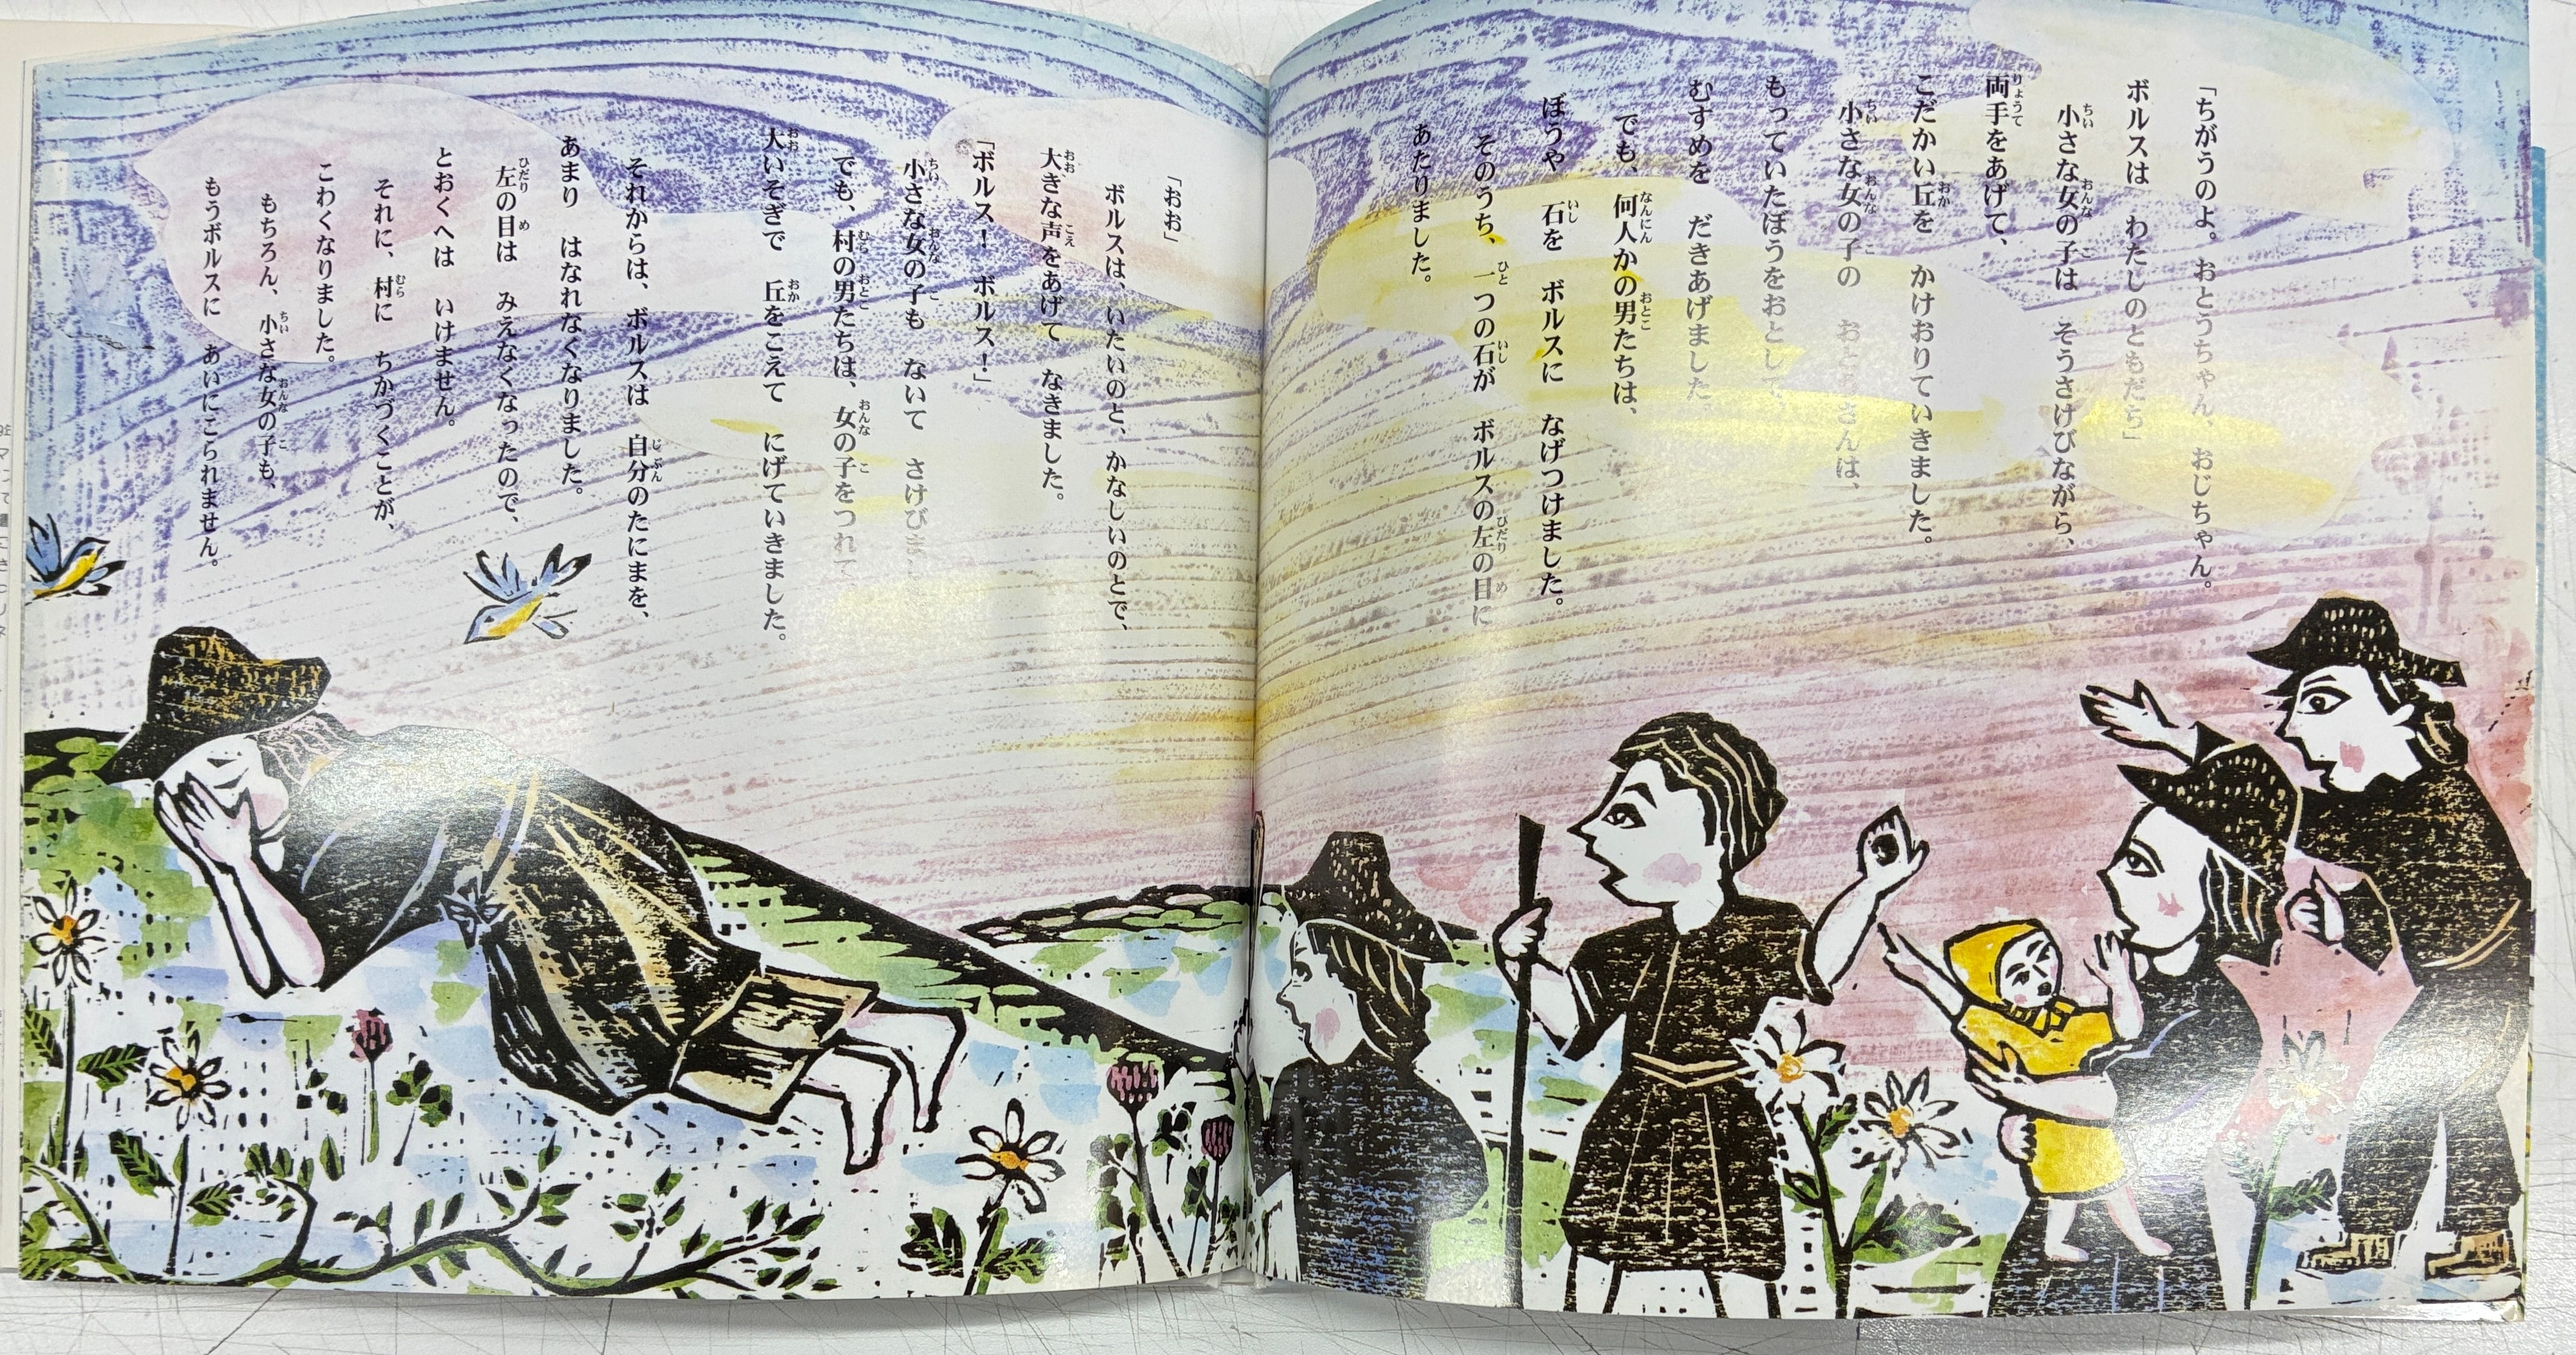 「ちがうのよ。おとうちゃん、おじちゃん。
ボルスは　わたしのともだち」
小さな女の子は　そうさけびながら、
両手をあげて、
こだかい丘を　かけおりていきました。
小さな女の子の　おとうさんは、
もっていたぼうをおとして、
むすめを　だきあげました。
でも、何人かの男たちは、
ぼうや　石を　ボルスに　なげつけました。
そのうち、一つの石が　ボルスの左の目に
あたりました。
「おお」
ボルスは、いたいのと、かなしいのとで、
大きな声をあげて　なきました。
「ボルス！　ボルス！」
小さな女の子も　ないて　さけびま
でも、村の男たちは、女の子をつれて
大いそぎで　丘をこえて　にげていきました。
それからは、ボルスは　自分のたにまを、
あまり　はなれなくなりました。
左の目は　みえなくなったので、
とおくへは　いけません。
それに、村に　ちかづくことが、
こわくなりました。
もちろん、小さな女の子も、
もうボルスに　あいにこられません。